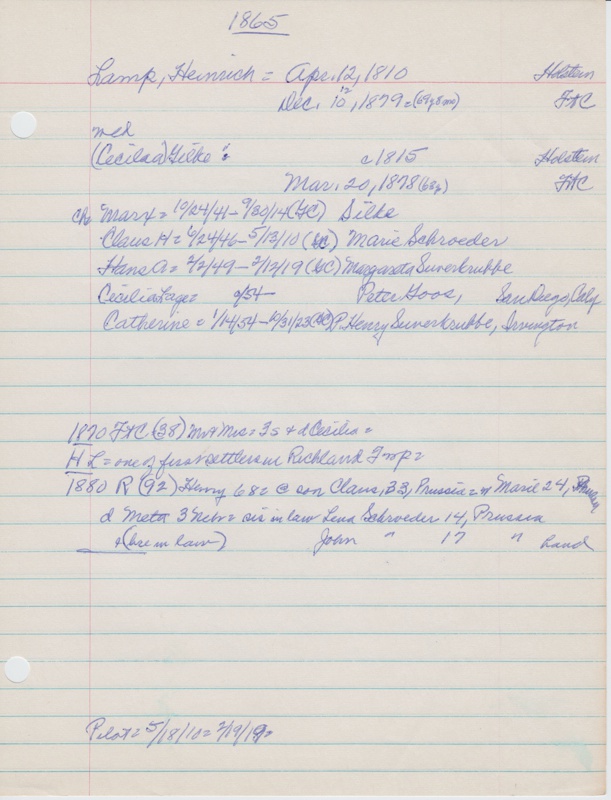 1865
Lamp, Heinrich = Apr. 12, 1810 Holstein
Dec. 10, 1879 = (69y 8m) F+C
12
med
(Cecilia) Silke = c1815 Holstein
Mar. 20, 1878 (63y) F+C
ch Marx = 10/24/41 - 9/30/14 (FC) Silke
Claus H = 6/24/46 - 5/13/10 (FC) Marie Schroeder
Hans A = 2/2/49 - 2/12/19 (FC) Margareta Suverkrubbe
Cecilia Lage = 9/54 - Peter Goos, San Diego, Calif
Catherine = 1/14/54 - 10/31/23 (FC) P. Henry Suverkrubbe, Irvington
1870 F+C (38) Mr + Mrs = 3s + d Cecilia =
H L = one of first settlers in Richland Twp =
1880 R (92) Henry 68 = @ son Claus, 33, Prussia = w Marie 24, Prussia
d Meta 3 Nebr = sis in law Lena Schroeder 14, Prussia
+ (bro in law) John " 17 " hand
Pilot = 5/18/10 = 2/19/19 =